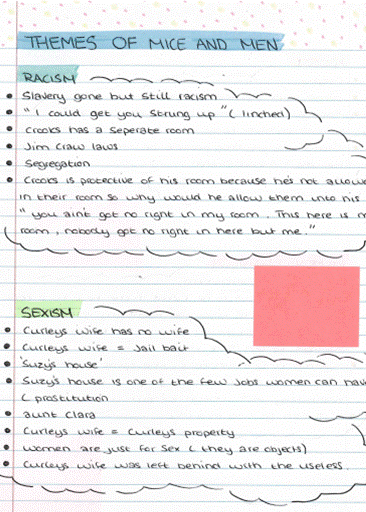 THEMES OF MICE AND MEN
RACISM
• Slavery gone but still racism
• "I could get you strung up" (linched)
• Crooks has a seperate room
• Jim Craw laws
• Segregation
• Crooks is protective of his room because he's not allowe
in their room so why would he allow them into his
"you ain't got no right in my room. This here is m
room, nobody got no right in here but me."
SEXISM
• Curleys wife has no wife
• Curleys wife = Jail bait
• 'Suzy's house'
• Suzy's house is one of the few jobs women can hav
( prostitution
• aunt Clara
• Curleys wife = Curleys property
• women are just for sex ( they are objects)
• Curleys wife was left behind with the useless.